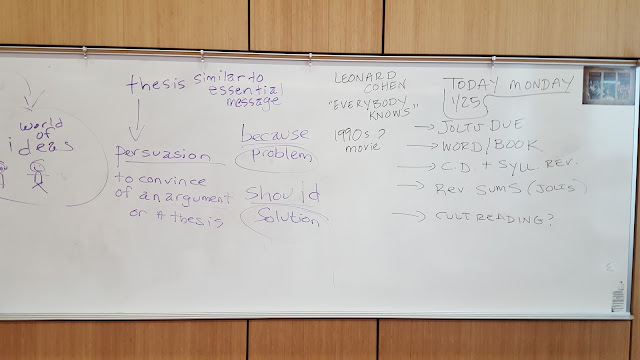 world
of
ideas
thesis similar to
essential
message
persuasion
to convince
of an argument
or A thesis
because
problem
should
solution
LEONARD
COHEN
"EVERYBODY
KNOWS"
1990s?
movie
TODAY MONDAY
1/25
→ JOLTS DUE
→ WORD/BOOK
→ C.D. + SYLL. REV.
→ REV SUMS (JOLTS)
→ CULT READING?